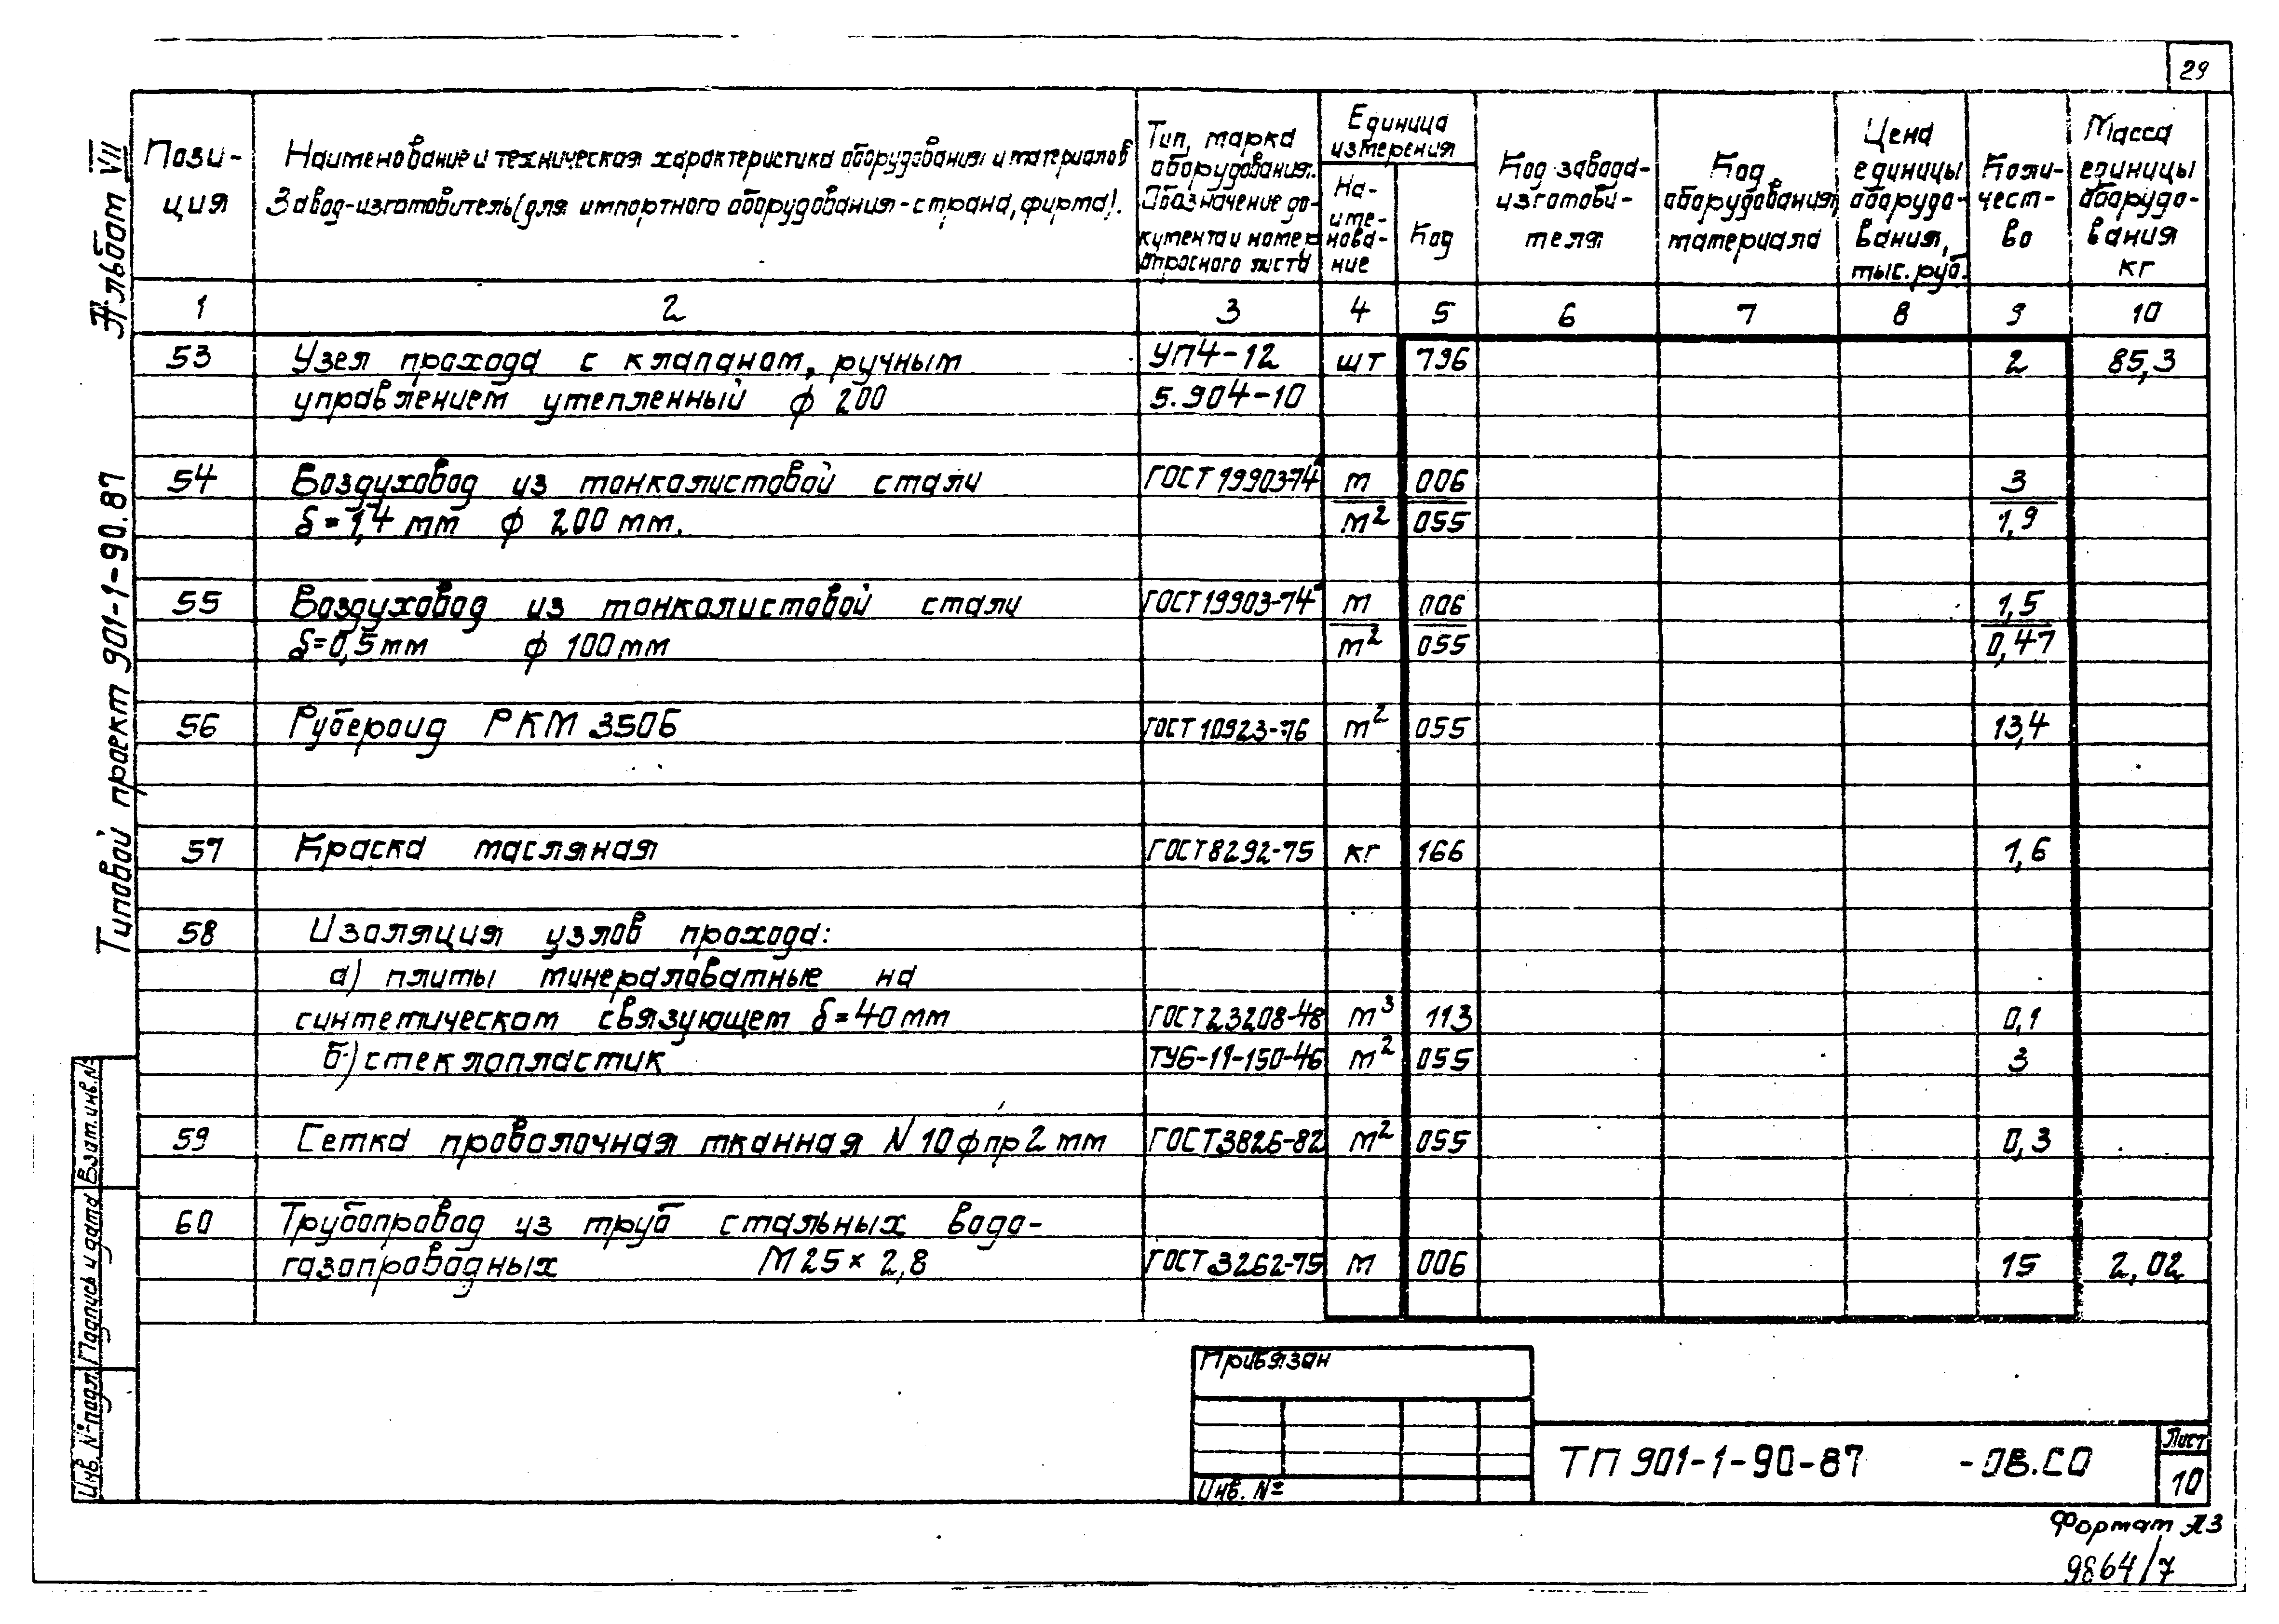 29
Альбом VII
Типовой проект 901-1-90.87
Пози-
ция
Наименование и техническая характеристика оборудования и материалов
Завод-изготовитель (для импортного оборудования - страна, фирма).
Тип, марка
оборудования.
Обозначение до-
кумента и номер
опросного листа
Единица
измерения
На-
име-
нова-
ние
Код
Код завода-
изготови-
теля
Код
оборудования,
материала
Цена
единицы
оборудо-
вания,
тыс. руб.
Коли-
чест-
во
Масса
единицы
оборудо-
вания
кг
1 2 3 4 5 6 7 8 9 10
53 Узел прохода с клапаном, ручным УП4-12 шт 796 2 85,3
управлением утепленный ф 200 5.904-10
54 Воздуховод из тонколистовой стали ГОСТ 19903-74* м 006 3
δ = 1,4 мм ф 200 мм. м² 055 1,9
55 Воздуховод из тонколистовой стали ГОСТ 19903-74* м 006 1,5
δ=0,5 мм ф 100 мм м² 055 0,47
56 Рубероид РКМ 350Б ГОСТ 10923-76 м² 055 13,4
57 Краска масляная ГОСТ 8292-75 кг 166 1,6
58 Изоляция узлов прохода:
а) плиты минераловатные на
синтетическом связующем δ=40 мм ГОСТ 23208-48 м³ 113 0,1
б) стеклопластик ТУ6-11-150-46 м² 055 3
59 Сетка проволочная тканная N 10 ф пр 2 мм ГОСТ 3826-82 м² 055 0,3
60 Трубопровод из труб стальных водо-
газопроводных М 25 × 2,8 ГОСТ 3262-75 м 006 15 2,02
Взам. инв. №
Подпись и дата
Инв. № подл.
Привязан
Инв. №
ТП 901-1-90-87 -ОВ.СО
Лист
10
Формат А3
9864/7